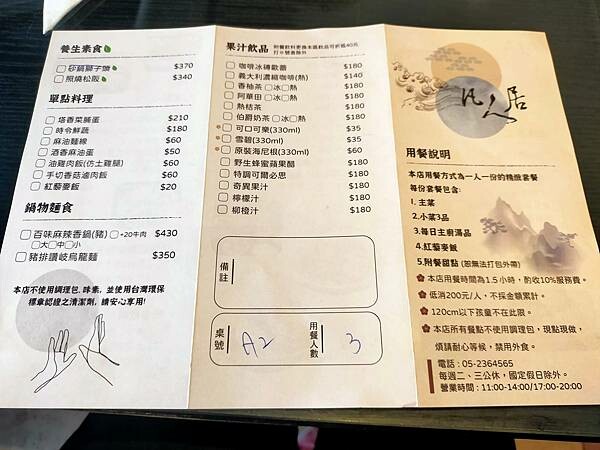 養生素食
砂鍋獅子頭 $370
照燒松阪 $340
單點料理
塔香菜脯蛋 $210
時令鮮蔬 $180
麻油麵線 $60
酒香麻油蛋 $50
油雞肉飯(仿土雞腿) $60
手切香菇滷肉飯 $60
紅藜麥飯 $20
鍋物麵食
百味麻辣香鍋(豬) +20牛肉 $430
大 中 小
豬排讚岐烏龍麵 $350
本店不使用調理包, 味素, 並使用台灣環保
標章認證之清潔劑, 請安心享用!
果汁飲品
附餐飲料更換本區飲品可折抵40元
打※號者除外
咖啡冰磚歐蕾 $180
義大利濃縮咖啡(熱) $140
香柚茶 冰 熱 $180
阿華田 冰 熱 $180
熱桔茶 $180
伯爵奶茶 冰 熱 $180
可口可樂(330ml) $35
雪碧(330ml) $35
原裝海尼根(330ml) $60
野生蜂蜜蘋果醋 $180
特調可爾必思 $180
奇異果汁 $180
檸檬汁 $180
柳橙汁 $180
備註
桌號 A2 用餐人數 3
凡人居
用餐說明
本店用餐方式為一人一份的精緻套餐
每份套餐包含:
1. 主菜
2.小菜3品
3.每日主廚湯品
4.紅藜麥飯
5.附餐甜點 (恕無法打包外帶)
本店用餐時間為1.5 小時，酌收10%服務費。
低消200元/人，不採金額累計。
120cm以下孩童不在此限。
本店所有餐點不使用調理包，現點現做，
煩請耐心等候，禁用外食。
電話 : 05-2364565
每週二、三公休，國定假日除外。
營業時間 : 11:00-14:00/17:00-20:00